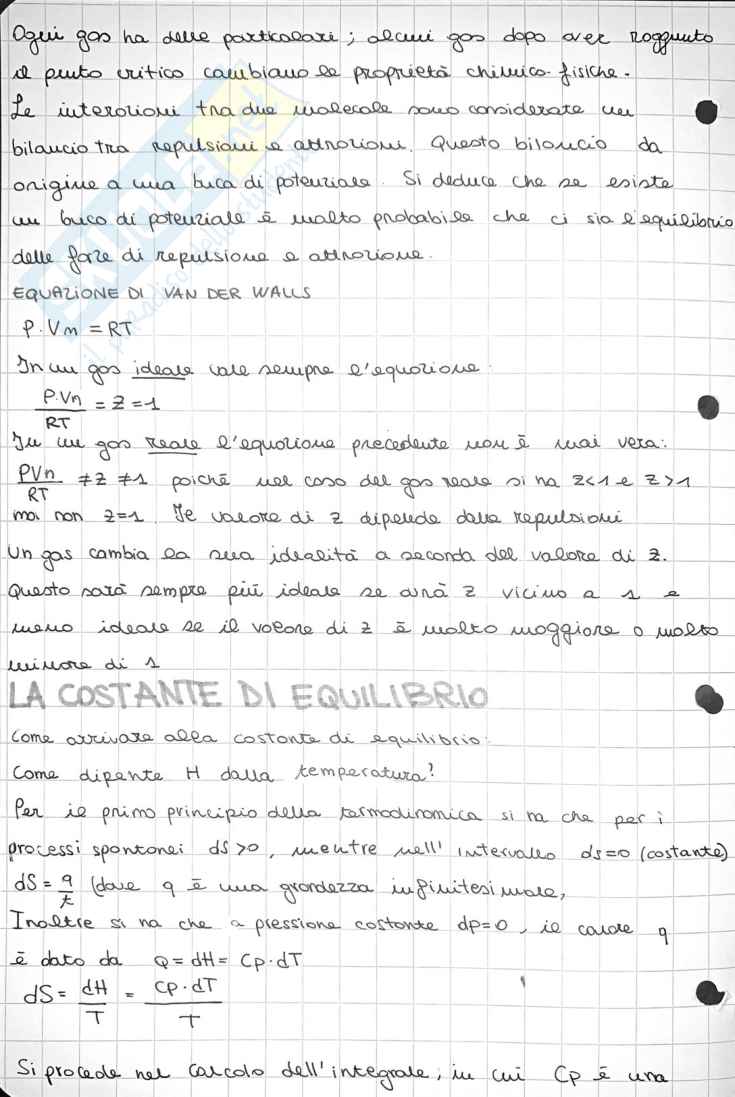 Ogni gas ha delle particolari; alcuni gas dopo aver raggiunto
il punto critico cambiano le proprietà chimico-fisiche.
Le interazioni tra due molecole sono considerate un
bilancio tra repulsioni e attrazioni. Questo bilancio da
origine a una buca di potenziale. Si deduce che se esiste
un buco di potenziale è molto probabile che ci sia l'equilibrio
delle forze di repulsione e attrazione.
EQUAZIONE DI VAN DER WALLS
P.Vm = RT
In un gas ideale vale sempre l'equazione:
P.Vn/RT = Z = 1
In un gas reale l'equazione precedente non è mai vera:
PVn/RT ≠ Z ≠ 1 poiché nel caso del gas reale si ha Z<1 e Z>1
mai non Z=1. Il valore di Z dipende dalle repulsioni
Un gas cambia la sua idealità a seconda del valore di Z.
Questo sarà sempre più ideale se avrà Z vicino a 1 e
meno ideale se il valore di Z è molto maggiore o molto
minore di 1
LA COSTANTE DI EQUILIBRIO
Come arrivare alla costante di equilibrio:
Come dipente H dalla temperatura?
Per il primo principio della termodinamica si ha che per i
processi spontanei dS>0, mentre nell'intervallo ds=0 (costante)
dS = q/t (dove q è una grandezza infinitesimale,
Inoltre si ha che a pressione costante dp=0, il calore q
è dato da Q = dH = Cp.dT
dS = dH/T = Cp.dT/T
Si procede nel calcolo dell'integrale, in cui Cp è una